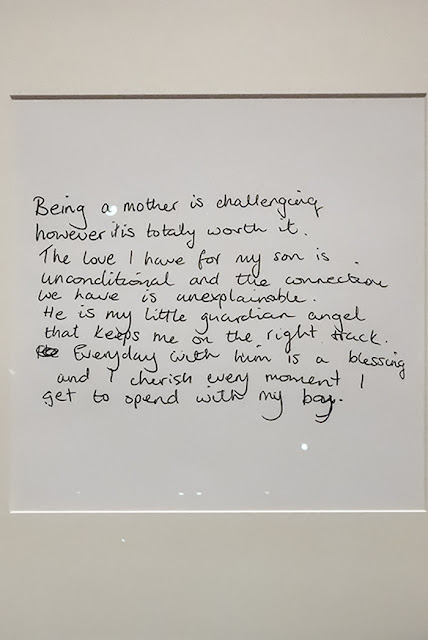 Being a mother is challenging
however it is totally worth it.
The love I have for my son is
unconditional and the connection
we have is unexplainable.
He is my little guardian angel
that keeps me on the right track.
Everyday with him is a blessing
and I cherish every moment I
get to spend with my boy.